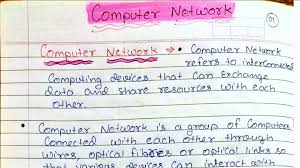 Computer Network
01
Computer Network → • Computer Network
refers to interconnected
Computing devices that can Exchange
data and share resources with each
other.
• Computer Network is a group of Computers
Connected with each other through
wires, optical fibres or optical links so
that various devices can interact with